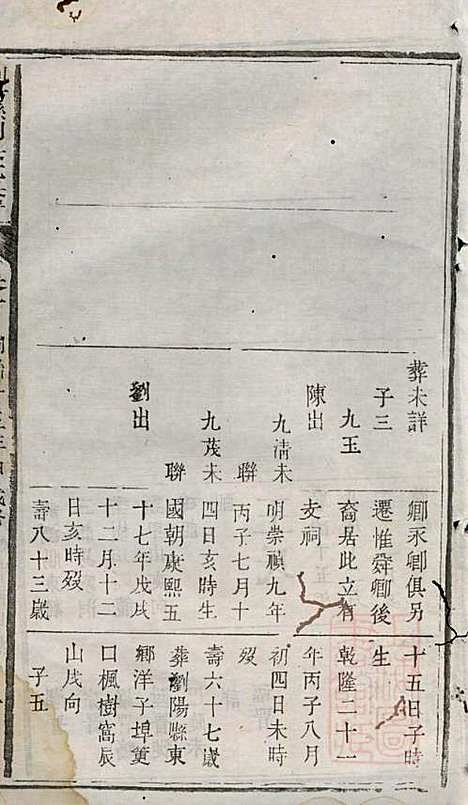 葬未詳
子三
九玉
陳出
九清未
聯
九茂未
聯
劉出
卿永卿俱另
遷惟舜卿後
裔居此立有
支祠
明崇禎九年
丙子七月十
四日亥時生
國朝康熙五
十七年戊戌
十二月十二
日亥時歿
壽八十三歲
十五日子時
生
乾隆二十一
年丙子八月
初四日未時
歿
壽六十七歲
葬劉陽縣東
鄉洋子埠䈎
口楓樹窩辰
山戌向
子五